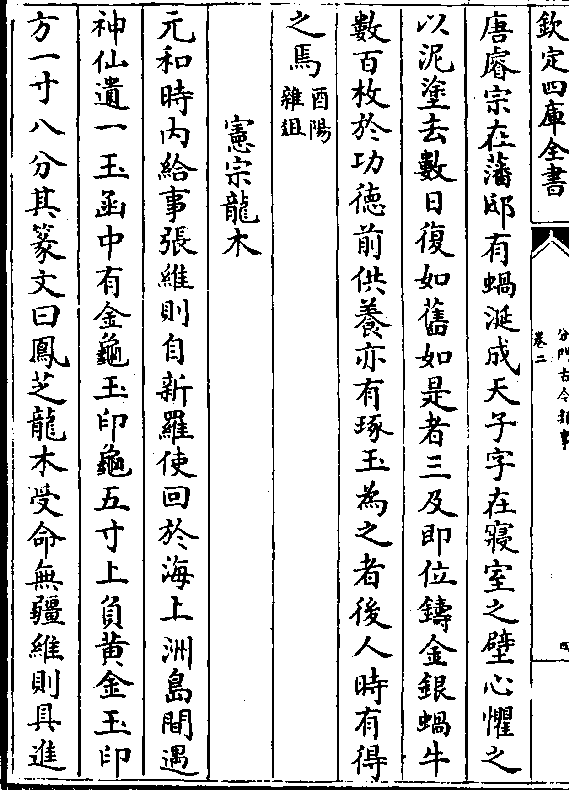 欽定四庫全書
卷二
分門古今類事
四
唐睿宗在藩邸有蝸涎成天子字在寢室之壁心懼之
以泥塗去數日復如舊如是者三及即位鑄金銀蝸牛
數百枚於功德前供養亦有琢玉為之者後人時有得
之焉酉陽雜俎
憲宗龍木
元和時內給事張維則自新羅使回於海上洲島間遇
神仙遺一玉函中有金龜玉印龜五寸上負黃金玉印
方一寸八分其篆文曰鳳芝龍木受命無疆維則具進